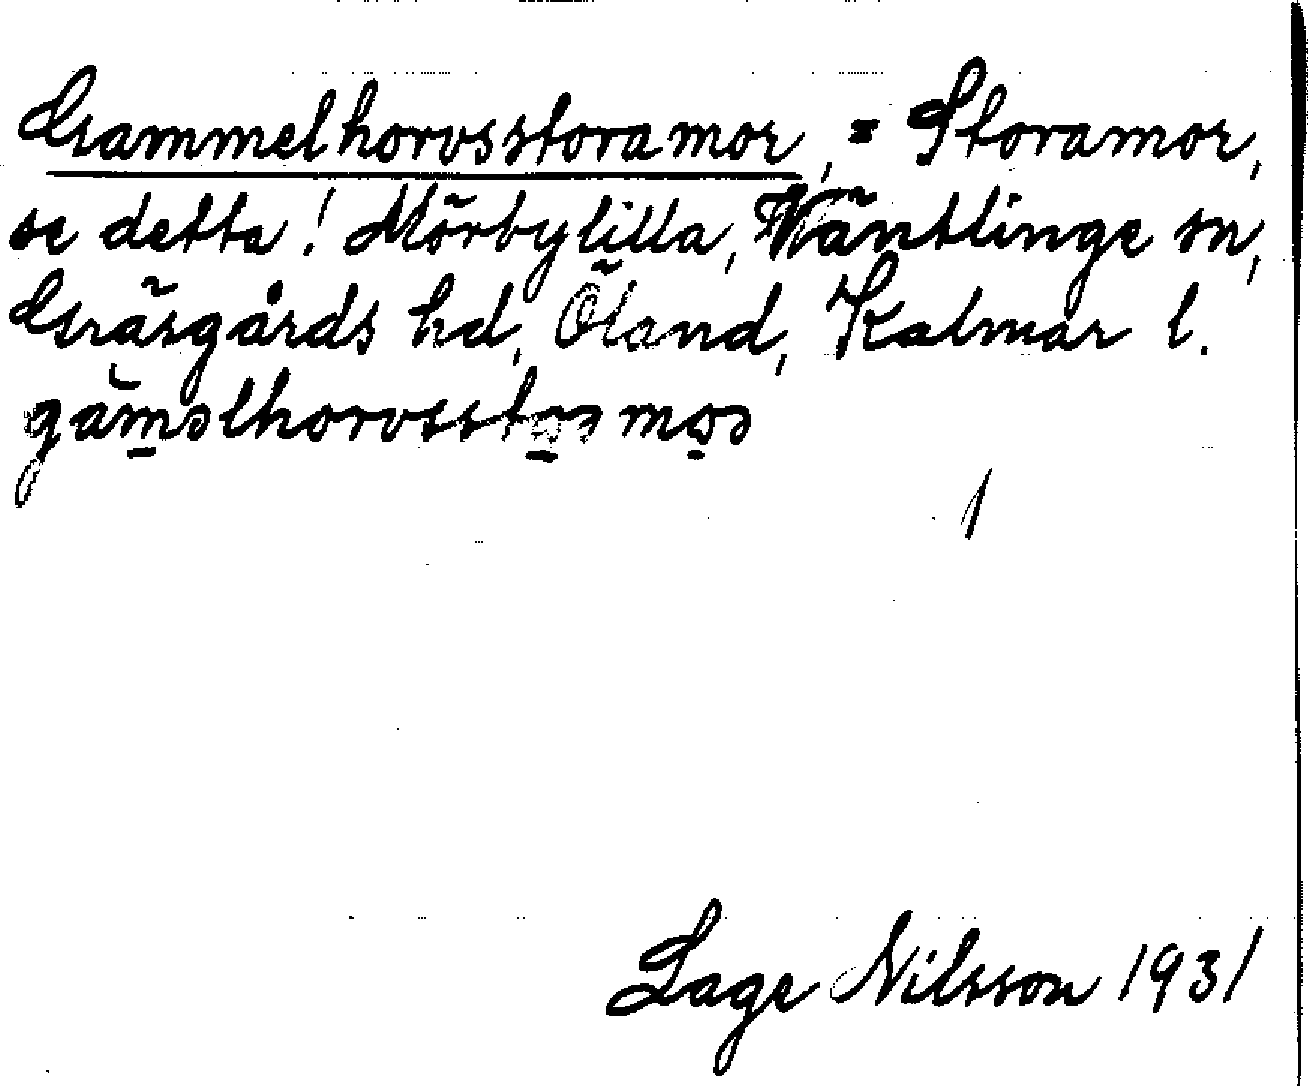 Gammelhorvsstoramor, = Storamor,
se detta! Mörbylilla, Väntlinge sn,
Gräsgårds hd, Öland, Kalmar l.
1
Lage Nilsson 1931